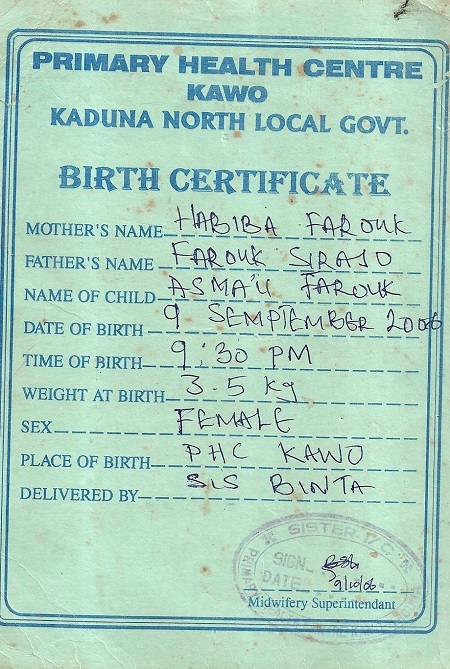 PRIMARY HEALTH CENTRE
KAWO
KADUNA NORTH LOCAL GOVT.
BIRTH CERTIFICATE
MOTHER'S NAME HABIBA FAROUK
FATHER'S NAME FAROUK SIRAJO
NAME OF CHILD ASMA'U FAROUK
DATE OF BIRTH 9 SEMPTEMBER 2006
TIME OF BIRTH 9:30 PM
WEIGHT AT BIRTH 3.5 kg
SEX FEMALE
PLACE OF BIRTH PHC KAWO
DELIVERED BY SIS BINTA
SISTER I/C
SIGN
DATE 9/10/06
Midwifery Superintendant